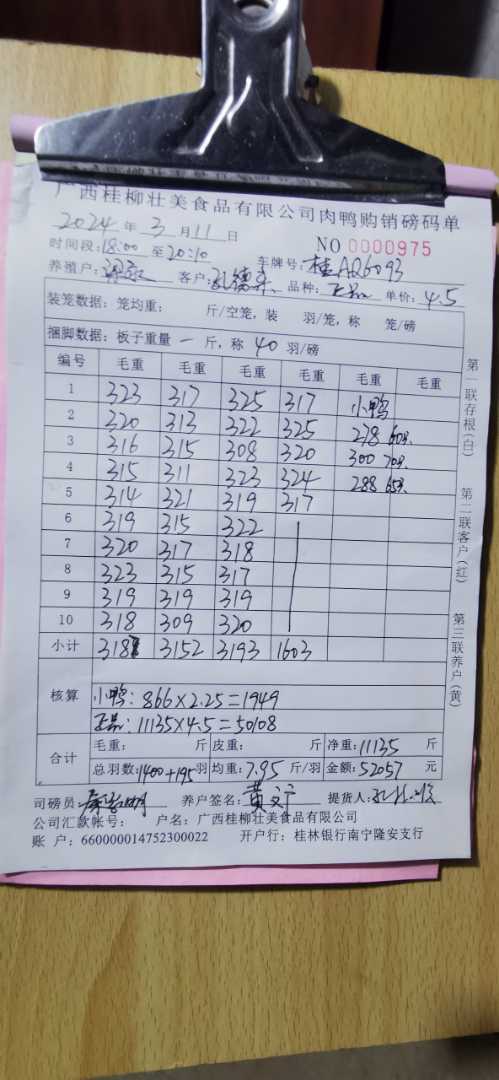 广西桂柳壮美食品有限公司肉鸭购销磅码单
2024 年 3 月 11 日 NO 0000975
时间段: 18:00 至 20:10 车牌号: 桂AQ6093
养殖户: 客户: 孔德 品种: 正品 单价: 4.5
装笼数据: 笼均重: 斤/空笼, 装 羽/笼, 称 笼/磅
捆脚数据: 板子重量 一 斤, 称 40 羽/磅
编号 毛重 毛重 毛重 毛重 毛重 毛重
1 323 317 325 317 小鸭
2 320 313 322 325 278 60只
3 316 315 308 320 300 70只
4 315 311 323 324 288 65只
5 314 321 319 317
6 319 315 322
7 320 317 318
8 323 315 317
9 319 319 319
10 318 309 320
小计 3187 3152 3193 1603
核算 小鸭: 866×2.25=1949
正品: 11135×4.5=50108
合计 毛重: 斤 皮重: 斤 净重: 11135 斤
总羽数: 1400+195 羽 均重: 7.95 斤/羽 金额: 52057 元
司磅员 养户签名: 黄 提货人:
公司汇款帐号: 户名: 广西桂柳壮美食品有限公司
账 户: 660000014752300022 开户行: 桂林银行南宁隆安支行
第一联存根(白)
第二联客户(红)
第三联养户(黄)